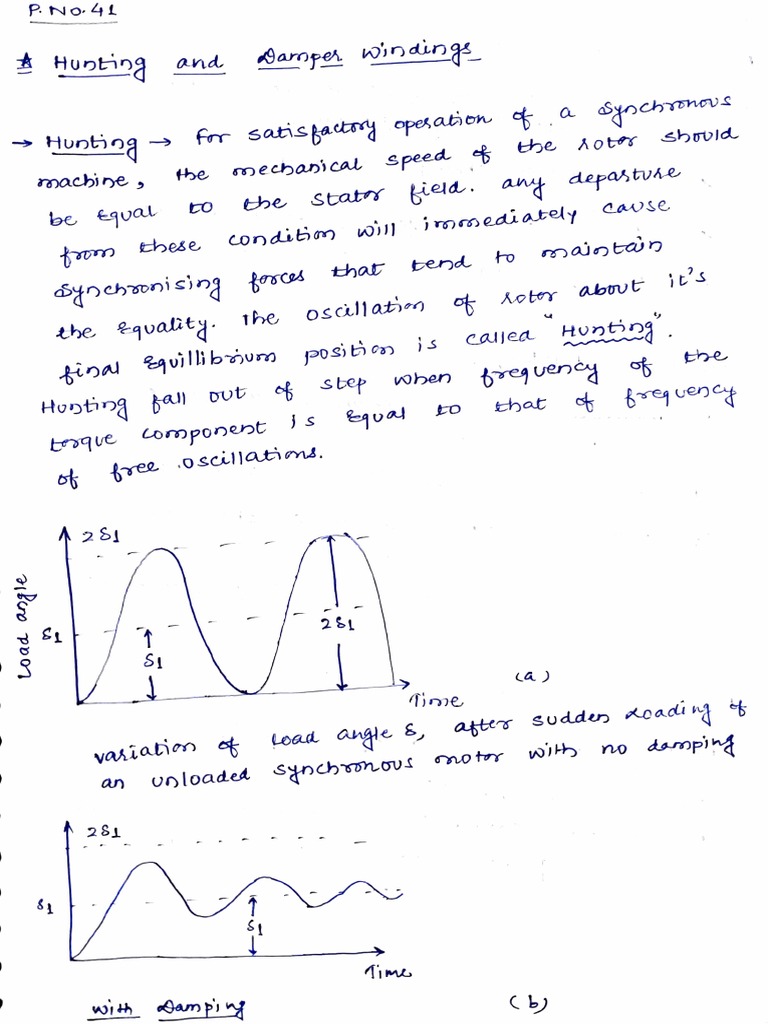 P.No.41
* Hunting and Damper Windings
→ Hunting → For satisfactory operation of a synchronous
machine, the mechanical speed of the rotor should
be equal to the stator field. any departure
from these condition will immediately cause
synchronising forces that tend to maintain
the equality. The oscillation of rotor about it's
final equillibrium position is called "Hunting".
Hunting fall out of step when frequency of the
torque component is equal to that of frequency
of free oscillations.
2δ1
Load angle
δ1
δ1
2δ1
(a)
Time
variation of load angle δ, after sudden loading of
an unloaded synchronous motor with no damping
2δ1
δ1
δ1
Time
with Damping
(b)